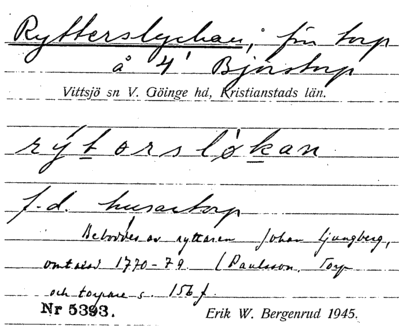 Rytterslyckan, för torp
å 4' Bjärstorp
Vittsjö sn V. Göinge hd, Kristianstads län.
rýtorsløkan
f.d. husartorp
Beboddes av ryttaren Johan Ljungberg,
omtalad 1770-79. (Paulsson, Torp
och torpare s. 156 f.
Nr 5393. Erik W. Bergenrud 1945.